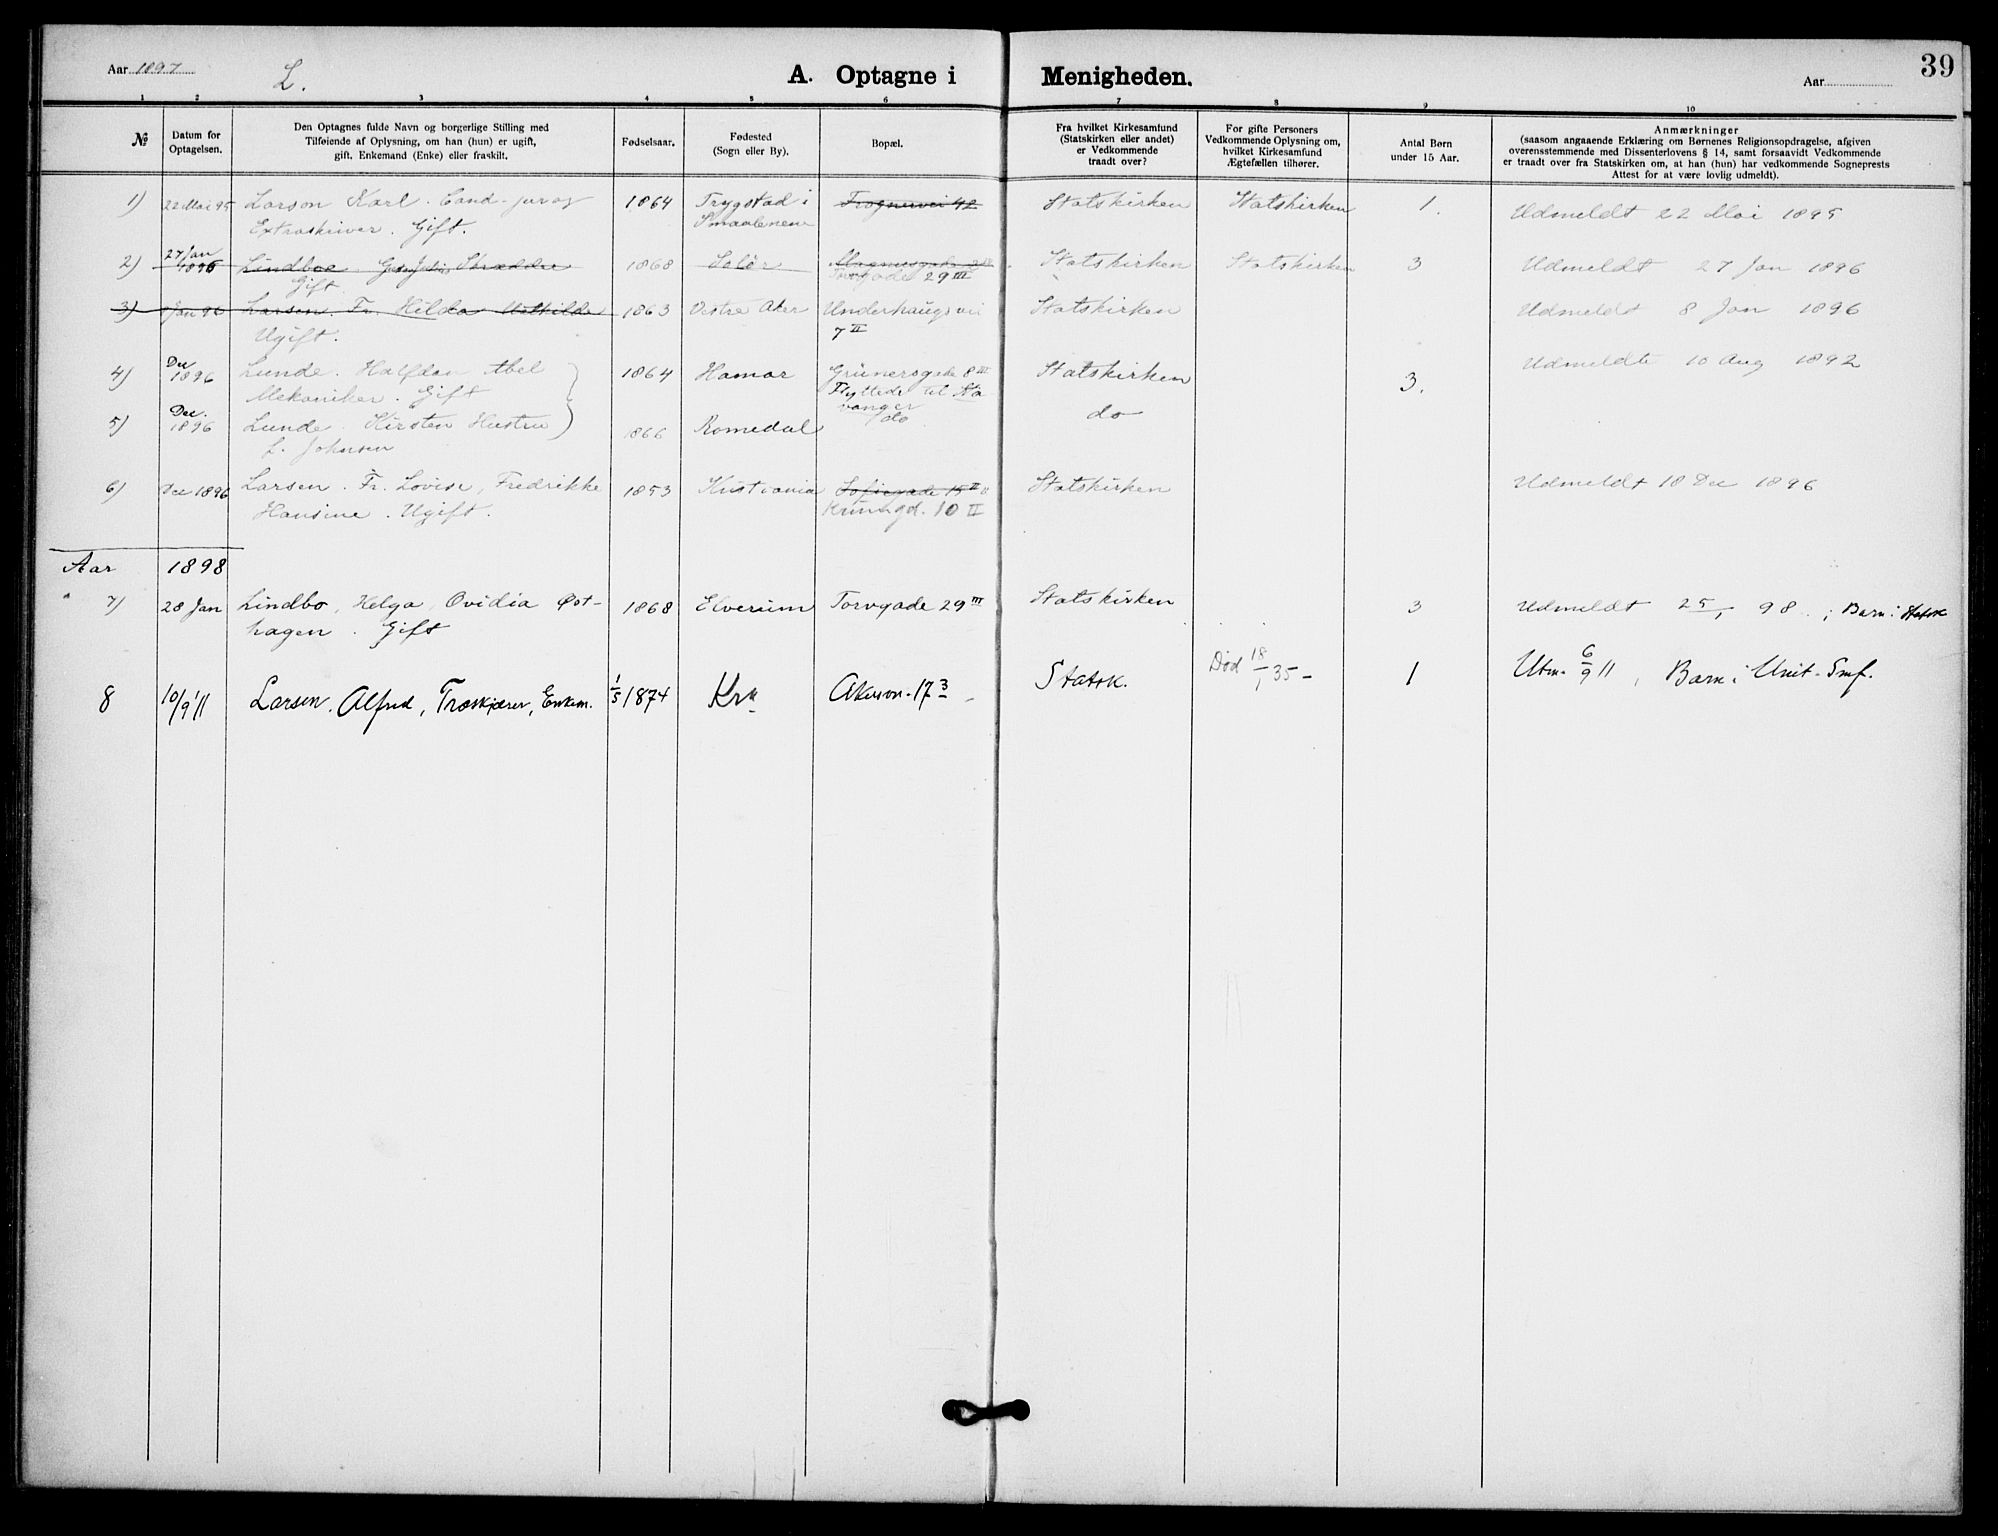 39
Aar 1897
L.
A. Optagne i Menigheden.
Aar
1 2 3 4 5 6 7 8 9 10
№
Datum for
Optagelsen.
Den Optagnes fulde Navn og borgerlige Stilling med
Tilføiende af Oplysning, om han (hun) er ugift,
gift, Enkemand (Enke) eller fraskilt.
Fødselsaar.
Fødested
(Sogn eller By).
Bopæl.
Fra hvilket Kirkesamfund
(Statskirken eller andet)
er Vedkommende
traadt over?
For gifte Personers
Vedkommende Oplysning om,
hvilket Kirkesamfund
Ægtefællen tilhører.
Antal Børn
under 15 Aar.
Anmærkninger
(saasom angaaende Erklæring om Børnenes Religionsopdragelse, afgiven
overensstemmende med Dissenterlovens § 14, samt forsaavidt Vedkommende
er traadt over fra Statskirken om, at han (hun) har vedkommende Sogneprests
Attest for at være lovlig udmeldt).
1) 22 Mai 95 Larson Karl. Cand. jur og 1864 Trygstad i Frognervei 42 Statskirken Statskirken 1. Udmeldt 22 Mai 1895
Extraskriver. Gift. Smaalenene
2) 27 Jan 1896 Lindboe Skrædder 1868 Solör Statskirken Statskirken 3 Udmeldt 27 Jan 1896
Gift Torvgade 29 III
3) Jan 96 Larsen. Fr. Hilda Mathilde 1863 Vestre Aker Underhaugsvei Statskirken Udmeldt 8 Jan 1896
Ugift. 7 II
4) Dec 1896 Lunde. Halfdan Abel 1864 Hamar Grünersgade 8 III Statskirken 3. Udmeldte 10 Aug 1892
Mekaniker. Gift Flyttede til Sta
vanger
5) Dec. 1896 Lunde Kirsten Hustru 1866 Romedal do do
f. Johnsen
6) Dec 1896 Larsen. Fr. Lovise, Fredrikke 1853 Kristiania Sofiegade 15 II Statskirken Udmeldt 10 Dec 1896
Hansine. Ugift. 10 II
Aar 1898
7) 28 Jan Lindbo, Helga, Ovidia Øst- 1868 Elverum Torvgade 29 III Statskirken 3 Udmeldt 25/1 98. ; Barn i Statsk
hagen. Gift
8 10/9 11 Larsen, Alfred, Træskjærer, Enkem. 1/5 1874 Kra Akersvn. 17 3 Statsk. Død 18/1 35 - 1 Utm. 6/9 11, Barn i Unit. Smf.